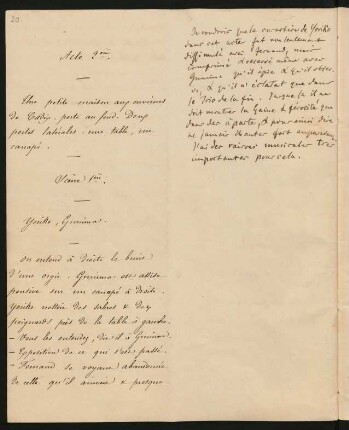 20
Acte 2me
Une petite maison aux environs
de porte au fond. Deux
portes latérales une table, un
canapé.
Scène 1re
Yoriko, Gemma
on entend à droite le bruit
d'une orgie. Gemma est assise
pensive sur un canapé à droite.
Yoriko nettoie des sabres & des
poignards près de la table à gauche.
– Vous les entendez, dit-il à Gemma.
– Exposition de ce qui s'est passé.
– Fernand se voyant abandonné
de celle qu'il aimait & presque
Je voudrais que la de Yoriko
dans cet acte fut non seulement
dissimulée avec Fernand, mais
comprimée même avec
Gemma qu'il épie & qu'il obser-
ve, & qu'il n'éclatat que dans
le Trio de la fin. Jusque là il ne
doit montrer sa haine & férocité que
dans des à parte, & pour ainsi dire
ne jamais chanter fort
J'ai des raisons musicales très
importantes pour cela.